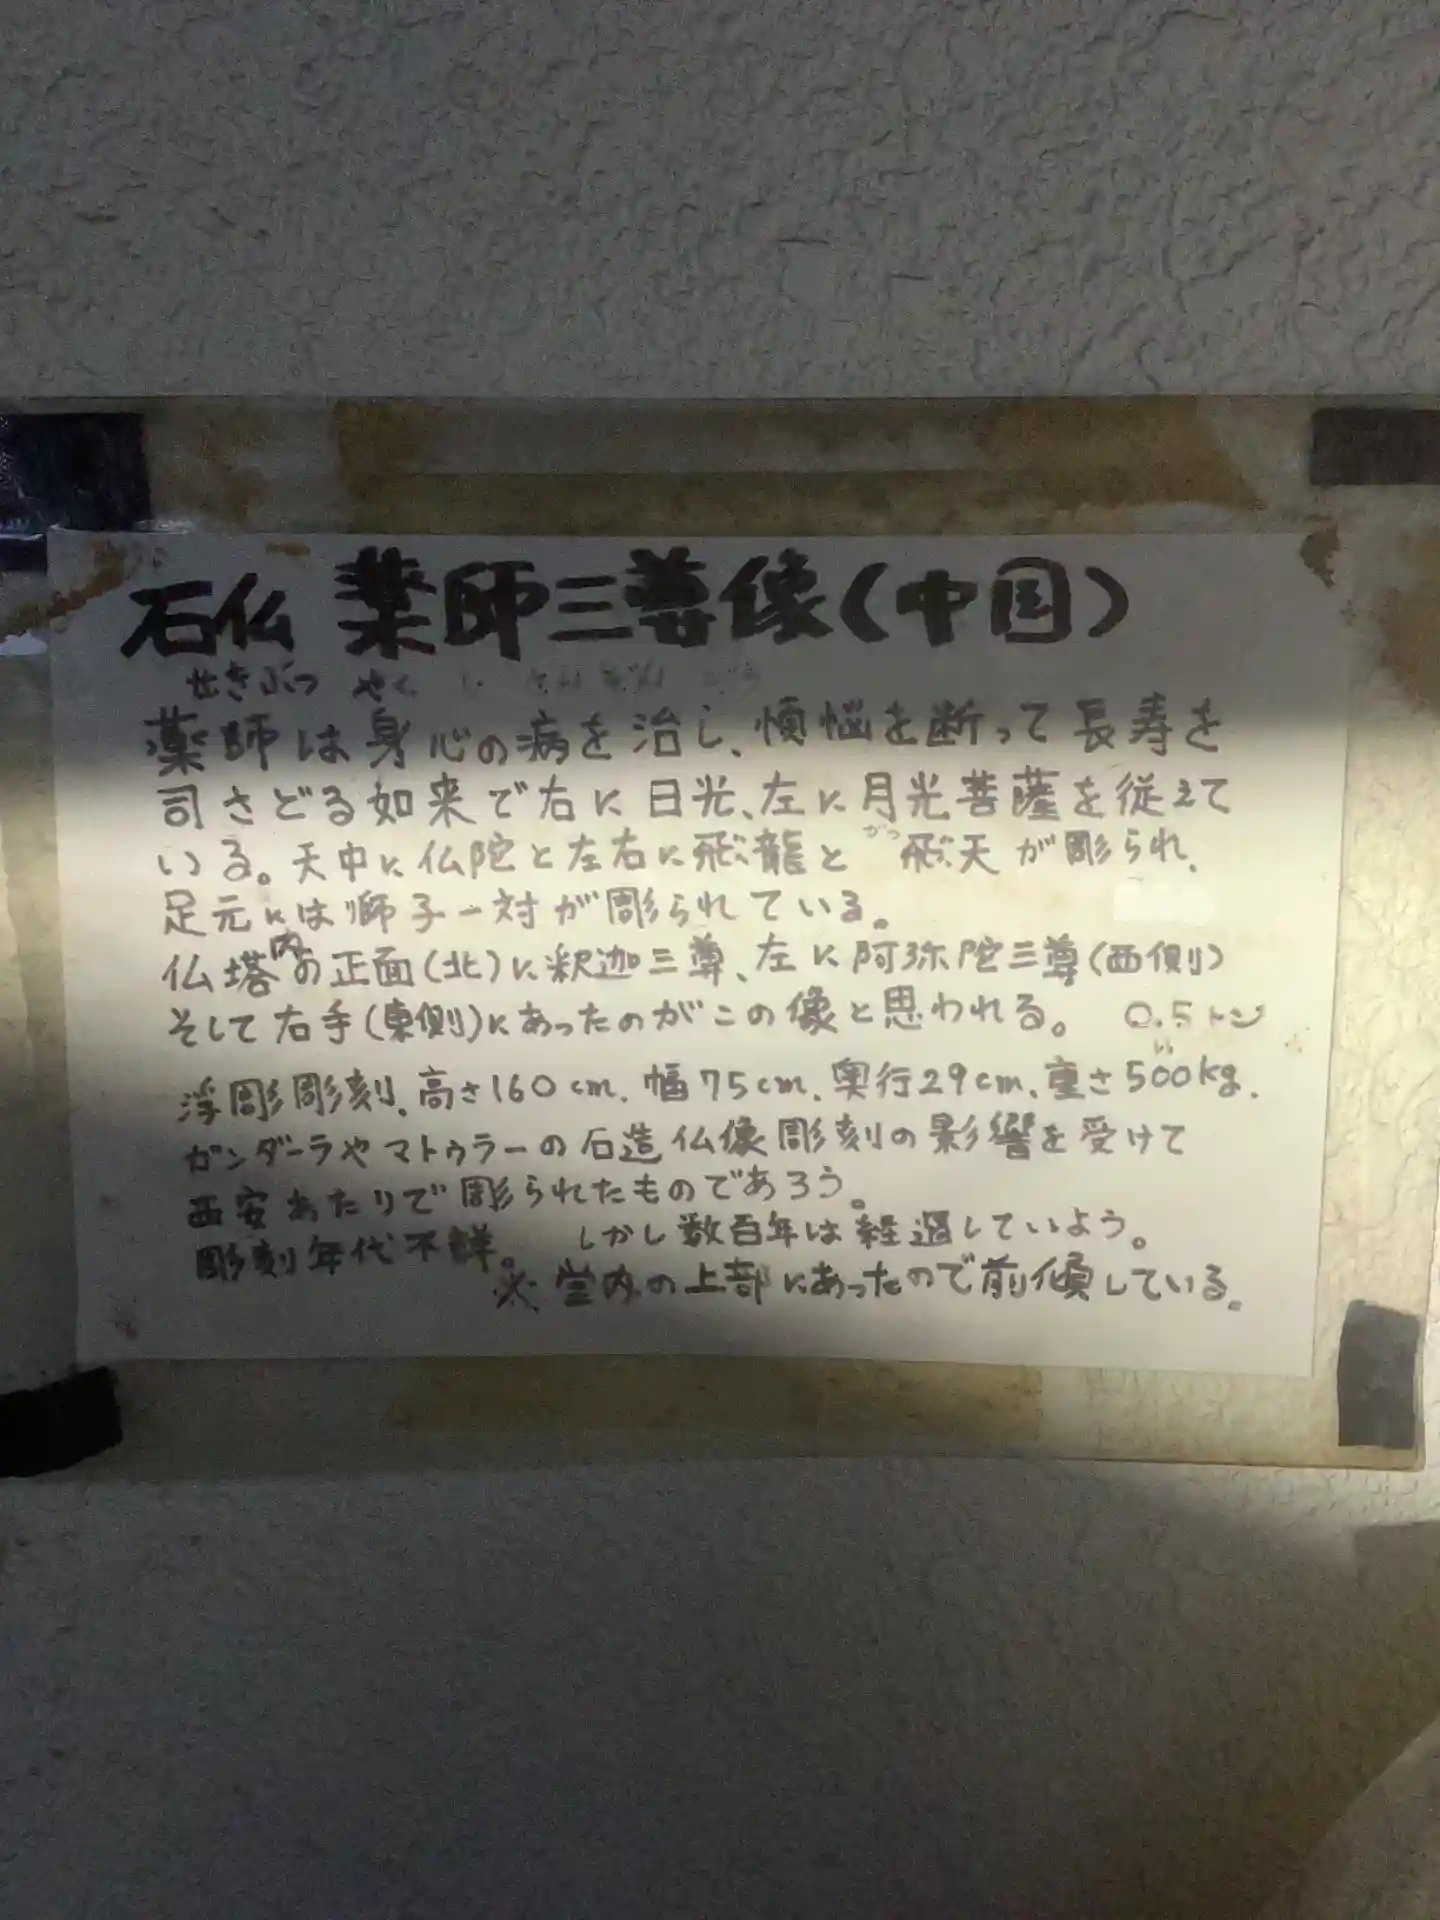 石仏 薬師三尊像(中国)
せきぶつ やくしさんぞんぞう
薬師は身心の病を治し、煩悩を断って長寿を
司さどる如来で右に日光、左に月光菩薩を従えて
がっ
いる。天中に仏陀と左右に飛龍と飛天が彫られ、
足元には獅子一対が彫られている。
仏塔内の正面(北)に釈迦三尊、左に阿弥陀三尊(西側)
そして右手(東側)にあったのがこの像と思われる。 0.5トン
浮彫彫刻、高さ160cm. 幅75cm. 奥行29cm. 重さ500kg.
ガンダーラやマトゥラーの石造仏像彫刻の影響を受けて
西安あたりで彫られたものであろう。
彫刻年代不詳。 しかし数百年は経過していよう。
※ 堂内の上部にあったので前傾している。